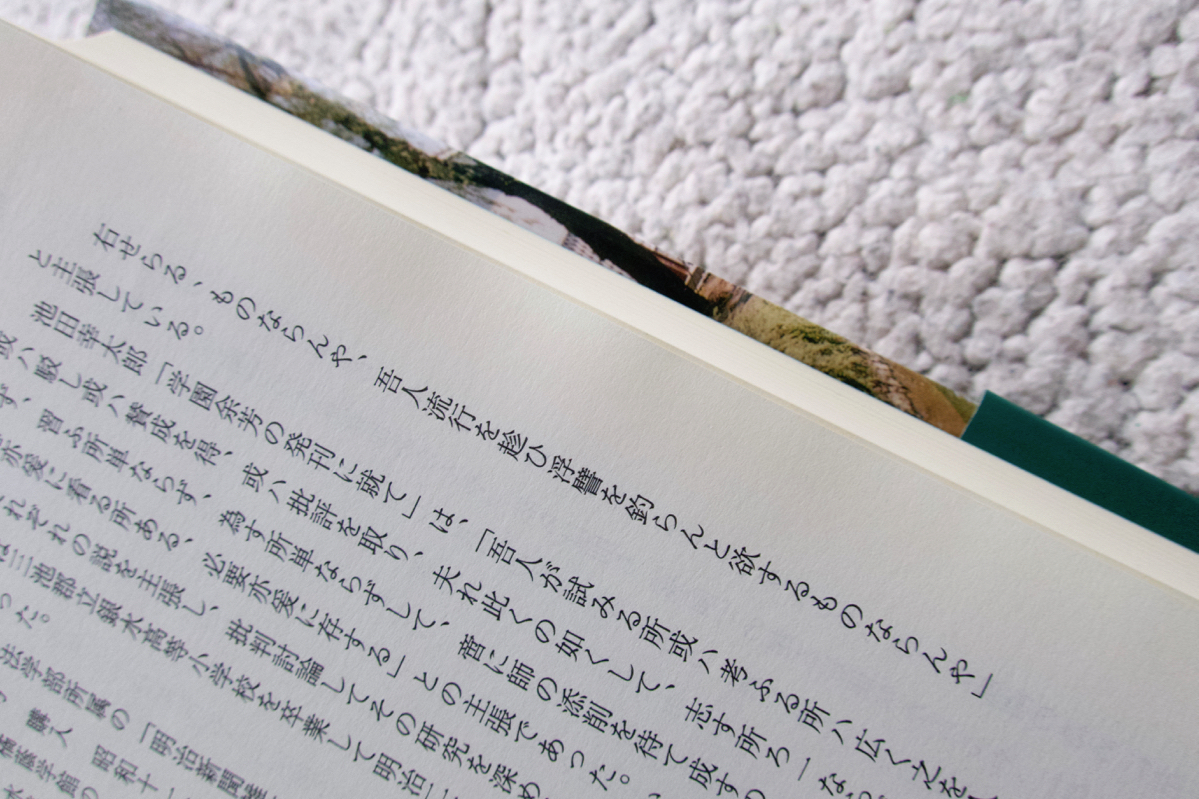 右せらるゝものならんや、吾人流行を趁ひ浮譽を釣らんと欲するものならんや」
と主張している。
池田幸太郎「学園余芳の発刊に就て」は、「吾人が試みる所或ハ考ふる所ハ広く之を
或ハ駁し或ハ賛成を得、或ハ批評を取り、夫れ此くの如くして、志す所ろ一なら
ず、習ふ所単ならず、為す所単ならずして、啻に師の添削を待て成すの
亦爰に看る所ある、必要亦爰に存する」との主張であった。
れぞれの説を主張し、批判討論してその研究を深め
は三池郡立銀水高等小学校を卒業して明治二
った。
法学部所属の「明治新聞雑
購入 昭和十一
権藤学館の